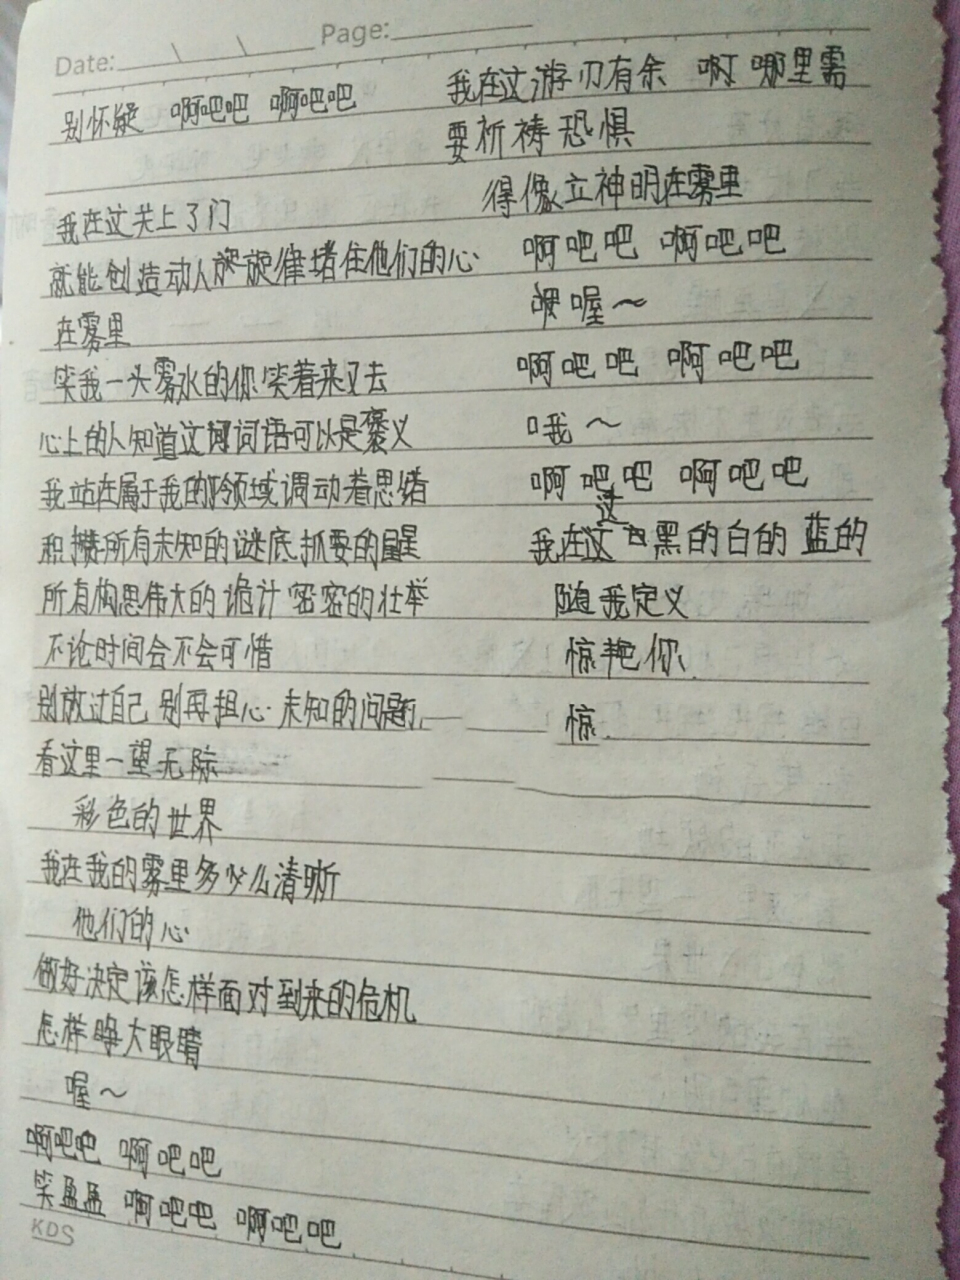 Date: \ \ Page:
别怀疑 啊吧吧 啊吧吧
我在这关上了门
就能创造动人旋旋律堵住他们的心
在雾里
笑我一头雾水的你笑着来又去
心上的人知道这词语可以是褒义
我站在属于我的领域调动着思绪
积攒所有未知的谜底抓耍的星
所有构思伟大的诡计密密的壮举
不论时间会不会可惜
别放过自己 别再担心 未知的问题
看这里一望无际
彩色的世界
我在我的雾里多么清晰
他们的心
做好决定该怎样面对到来的危机
怎样睁大眼睛
喔～
啊吧吧 啊吧吧
笑盈盈 啊吧吧 啊吧吧
KDS
我在这游刃有余 啊 哪里需
要祈祷恐惧
得像立神明在雾里
啊吧吧 啊吧吧
喔～
啊吧吧 啊吧吧
哦～
啊吧吧 啊吧吧
我在这 黑的白的 蓝的
随我定义
惊艳你
惊